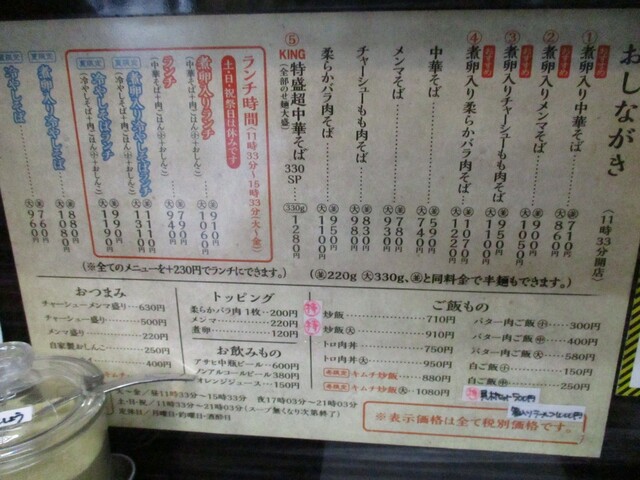 おしながき
(11時33分開店)
おすすめ
① 煮卵入り中華そば
おすすめ
② 煮卵入りメンマそば
おすすめ
③ 煮卵入りチャーシューもも肉そば
おすすめ
④ 煮卵入り柔らかバラ肉そば
1070円
大 1220円
中華そば
590円
大 740円
メンマそば
780円
大 930円
チャーシューもも肉そば
830円
大 980円
柔らかバラ肉そば
950円
大 1100円
⑤ KING 特盛超中華そば 330SP
(全部のせ麺大盛)
330g 1280円
ランチ時間(11時33分～15時33分)(火～金)
土・日・祝祭日は休みです
煮卵入りランチ
910円
大 1060円
ランチ
(中華そば+肉ごはん(小)+おしんこ)
790円
大 940円
夏限定
煮卵入り冷やしそばランチ
1110円
大 1310円
夏限定
冷やしそばランチ
(冷やしそば+肉ごはん(小)+おしんこ)
990円
大 1190円
夏限定
煮卵入り冷やしそば
880円
大 1080円
夏限定
冷やしそば
760円
大 960円
(※全てのメニューを+230円でランチにできます。)
(並220g 大330g、並と同料金で半麺もできます。)
おつまみ
チャーシューメンマ盛り…630円
チャーシュー盛り…500円
メンマ盛り…220円
自家製おしんこ…250円
キムチ…400円
トッピング
柔らかバラ肉 1枚…200円
メンマ…220円
煮卵…120円
お飲みもの
アサヒ中瓶ビール…600円
ノンアルコールビール…380円
オレンジジュース…150円
ご飯もの
炒飯…710円
炒飯大…910円
トロ肉丼…750円
トロ肉丼大…950円
キムチ炒飯…880円
キムチ炒飯大…1080円
バター肉ご飯 小…300円
バター肉ご飯 中…400円
バター肉ご飯 大…580円
白ご飯 小…150円
白ご飯 中…250円
火～金/昼11時33分～15時33分 夜17時03分～21時03分
土・日・祝/11時33分～21時03分(スープ無くなり次第終了)
定休日/月曜日・
※表示価格は全て税別価格です。